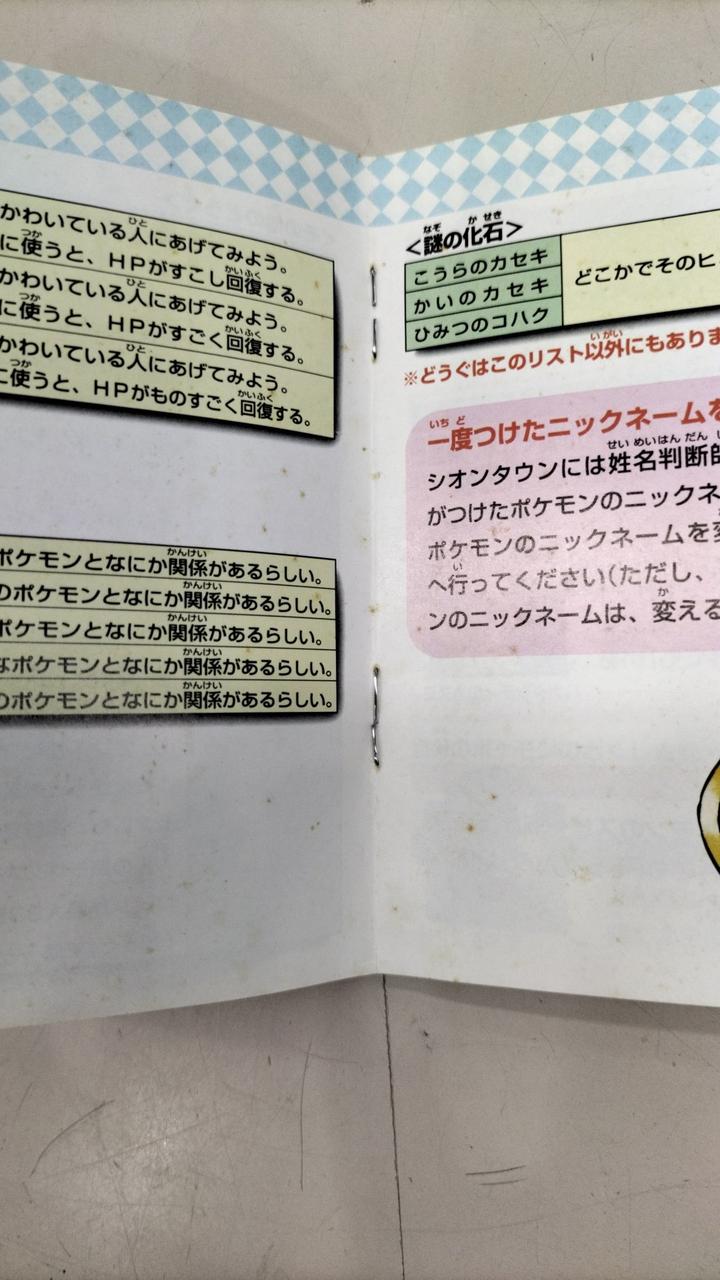 かわいている人にあげてみよう。
に使うと、HPがすこし回復する。
かわいている人にあげてみよう。
に使うと、HPがすごく回復する。
かわいている人にあげてみよう。
に使うと、HPがものすごく回復する。
ポケモンとなにか関係があるらしい。
のポケモンとなにか関係があるらしい。
ポケモンとなにか関係があるらしい。
なポケモンとなにか関係があるらしい。
のポケモンとなにか関係があるらしい。
<謎の化石>
こうらのカセキ
かいのカセキ
ひみつのコハク
どこかでそのヒ
※どうぐはこのリスト以外にもありま
一度つけたニックネームを
シオンタウンには姓名判断師
がつけたポケモンのニックネ
ポケモンのニックネームを変
へ行ってください(ただし、
ンのニックネームは、変える